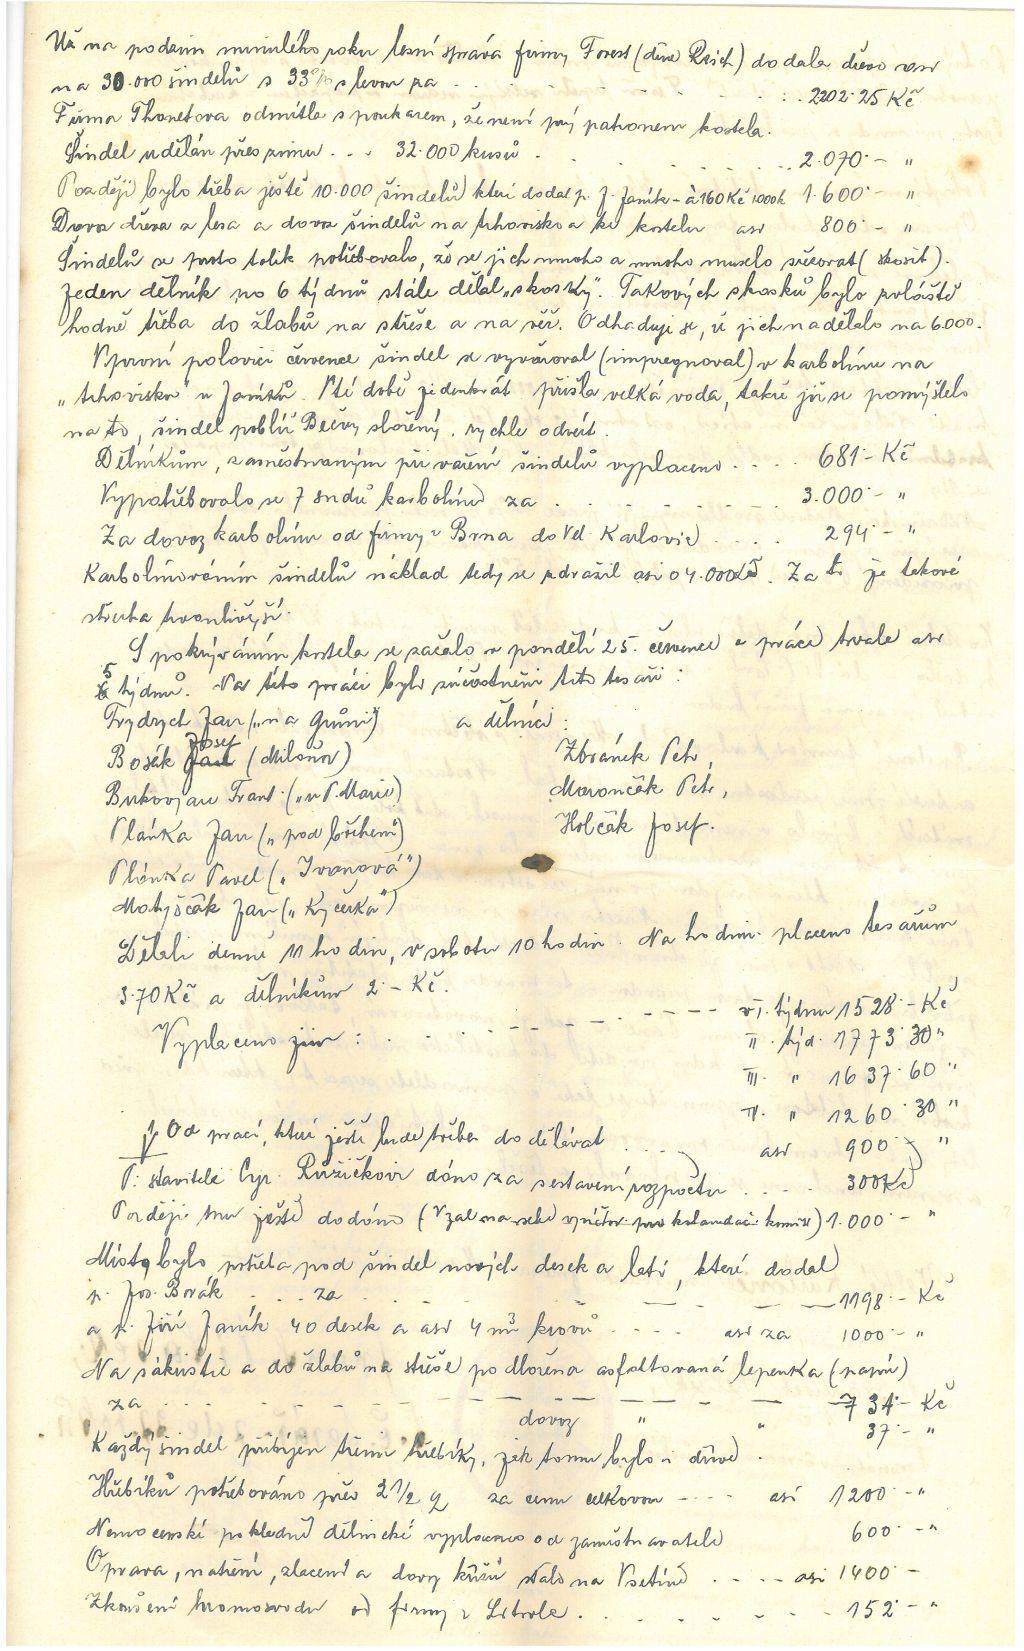 Už na podzim minulého roku lesní správa firmy Forest (dříve Reich) dodala dřevo asi
na 30.000 šindelů s 33% slevou za . . . . . 2202·25 Kč
Firma Thonetova odmítla s poukazem, že není prý patronem kostela.
Šindel udělán přes zimu . . . 32.000 kusů . . . . . 2.070·- "
Později bylo třeba ještě 10.000 šindelů, kteří dodal p. J. Janík - à 160 Kč 1000k 1.600·- "
Dovoz dřeva z lesa a dovoz šindelů na trhovisko a ke kostelu asi 800·- "
Šindelů se proto tolik potřebovalo, že se jich mnoho a mnoho muselo súčovat (skosit).
Jeden dělník po 6 týdnů stále dělal "skosky". Takových skosků bylo zvláště
hodně třeba do žlabů na střeše a na věž. Odhaduje se, že jich nadělalo na 6.000.
V první polovici července šindel se vyvařoval (impregnoval) v karbolínu na
"trhovisku" u Janíků. V té době jedenkrát přišla velká voda, takže již se pomýšlelo
na to, šindel poblíž Bečvy složený, rychle odvézt.
Dělníkům, zaměstnaným při vaření šindelů vyplaceno . . . . 681·- Kč
Vypotřebovalo se 7 sudů karbolínu za . . . . . 3.000·- "
Za dovoz karbolínu od firmy z Brna do Vel. Karlovic . . . . 294·- "
Karbolínováním šindelů náklad tedy se zdražil asi o 4.000 Kč. Za to je taková
střecha trvanlivější.
S pokrýváním kostela se začalo v pondělí 25. července a práce trvala asi
5 týdnů. Na této práci byli súčastněni tito tesaři:
Frydrych Jan ("na Grúni") a dělníci:
Bosák Josef (Miloňov) Zbránek Petr,
Bukovjan Frant. ("u P. Marie") Marončák Petr,
Plánka Jan ("pod břehem") Holčák Josef.
Plánka Pavel ("Ivanová")
Matyščák Jan ("Kyčerka")
Dělali denně 11 hodin, v sobotu 10 hodin. Na hodinu placeno tesařům
3·70 Kč a dělníkům 2·- Kč.
Vyplaceno jim: . . . . . v I. týdnu 1528·- Kč
II. týd. 1773·30 "
III. " 1637·60 "
IV. " 1260·30 "
Od prací, které ještě bude třeba dodělávat . . . . asi 900·- "
P. staviteli Cyr. Růžičkovi dáno za sestavení rozpočtu . . . . 300 Kč
Později mu ještě dodáno (vzal na sebe ) 1.000·- "
Místy bylo potřeba pod šindel nových desek a latí, které dodal
p. Jos. Borák . . . za . . . . 1198·- Kč
a p. Jiří Janík 40 desek a asi 4 m³ krovů . . . . asi za 1000·- "
Na sákristii a do žlabů na střeše podložena asfaltovaná lepenka (papír)
za . . . . . 734·- Kč
dovoz " " 37·- "
Každý šindel přibíjen třemi hřebíky, jak tomu bylo i dříve.
Hřebíků potřebováno přes 2 1/2 q za cenu celkovou - - - asi 1200·- "
Nemocenské pokladně dělnické vyplaceno od zaměstnavatele 600·- "
Oprava, natření, zlacení a dovoz křížů stálo na Vsetíně . . . . asi 1400·-
Zkoušení hromosvodu od firmy z . . . . . 152·- "